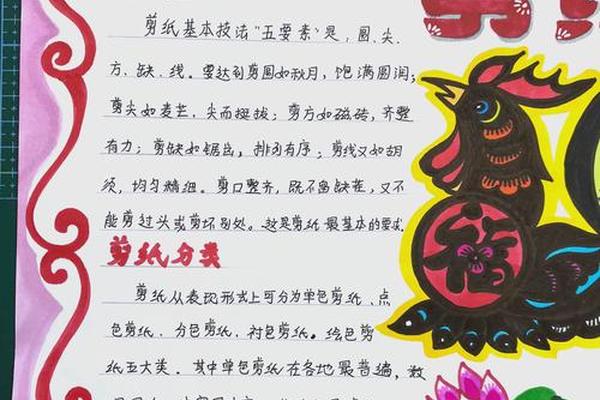 剪纸基本技法"五要素"是，圆、尖、
方、缺、线。要达到剪圆如秋月，饱满圆润；
剪尖如麦芒，尖而挺拔；剪方如磁砖，齐整
有力；剪缺如锯齿，排列有序；剪线又如胡
须，均匀精细。剪口整齐，既不留缺茬，又不
能剪过头或剪坏别处。这是剪纸最基本的要求
剪纸分类
剪纸从表现形式上可分为单色剪纸、点
色剪纸、分色剪纸、衬色剪纸。绘色剪
纸五大类。其中单色剪纸在各地最普遍，数
福